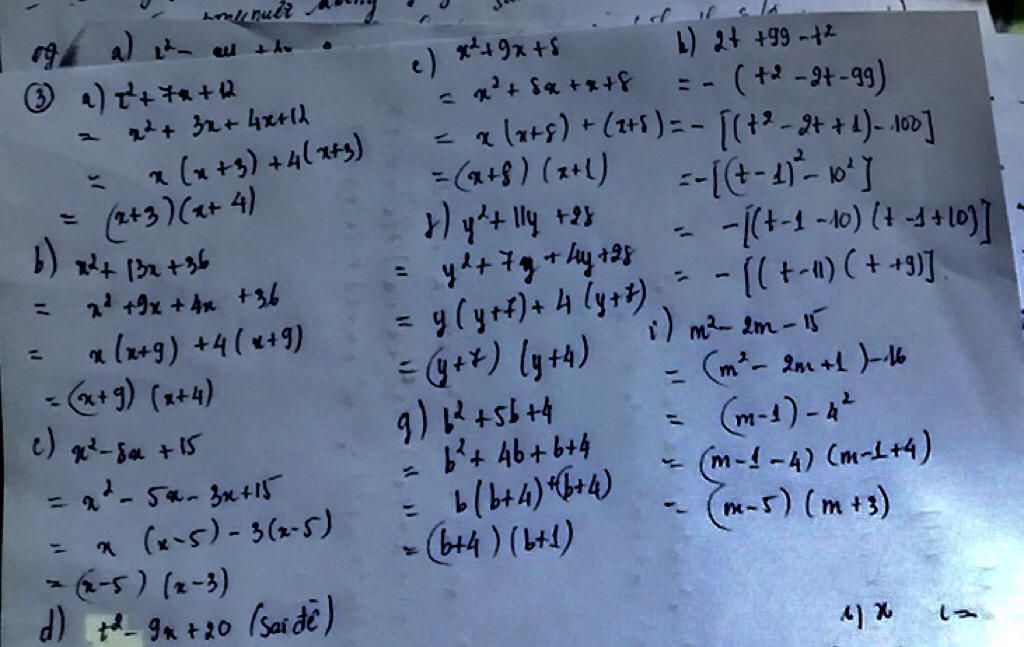 ③ a) x² + 7x + 12
= x² + 3x + 4x + 12
= x (x+3) + 4(x+3)
= (x+3)(x+4)
b) x² + 13x + 36
= x² + 9x + 4x + 36
= x (x+9) + 4(x+9)
= (x+9) (x+4)
c) x² - 8x + 15
= x² - 5x - 3x + 15
= x (x-5) - 3(x-5)
= (x-5) (x-3)
d) t² - 9x + 20 (Sai đề)
e) x² + 9x + 8
= x² + 8x + x + 8
= x (x+8) + (x+8)
= (x+8) (x+1)
f) y² + 11y + 28
= y² + 7y + 4y + 28
= y (y+7) + 4 (y+7)
= (y+7) (y+4)
g) b² + 5b + 4
= b² + 4b + b + 4
= b(b+4) + (b+4)
= (b+4) (b+1)
h) 2t + 99 - t²
= - (t² - 2t - 99)
= - [(t² - 2t + 1) - 100]
= - [(t-1)² - 10²]
= - [(t-1-10) (t-1+10)]
= - [(t-11) (t+9)].
i) m² - 2m - 15
= (m² - 2m + 1) - 16
= (m-1) - 4²
= (m-1-4) (m-1+4)
= (m-5) (m+3)